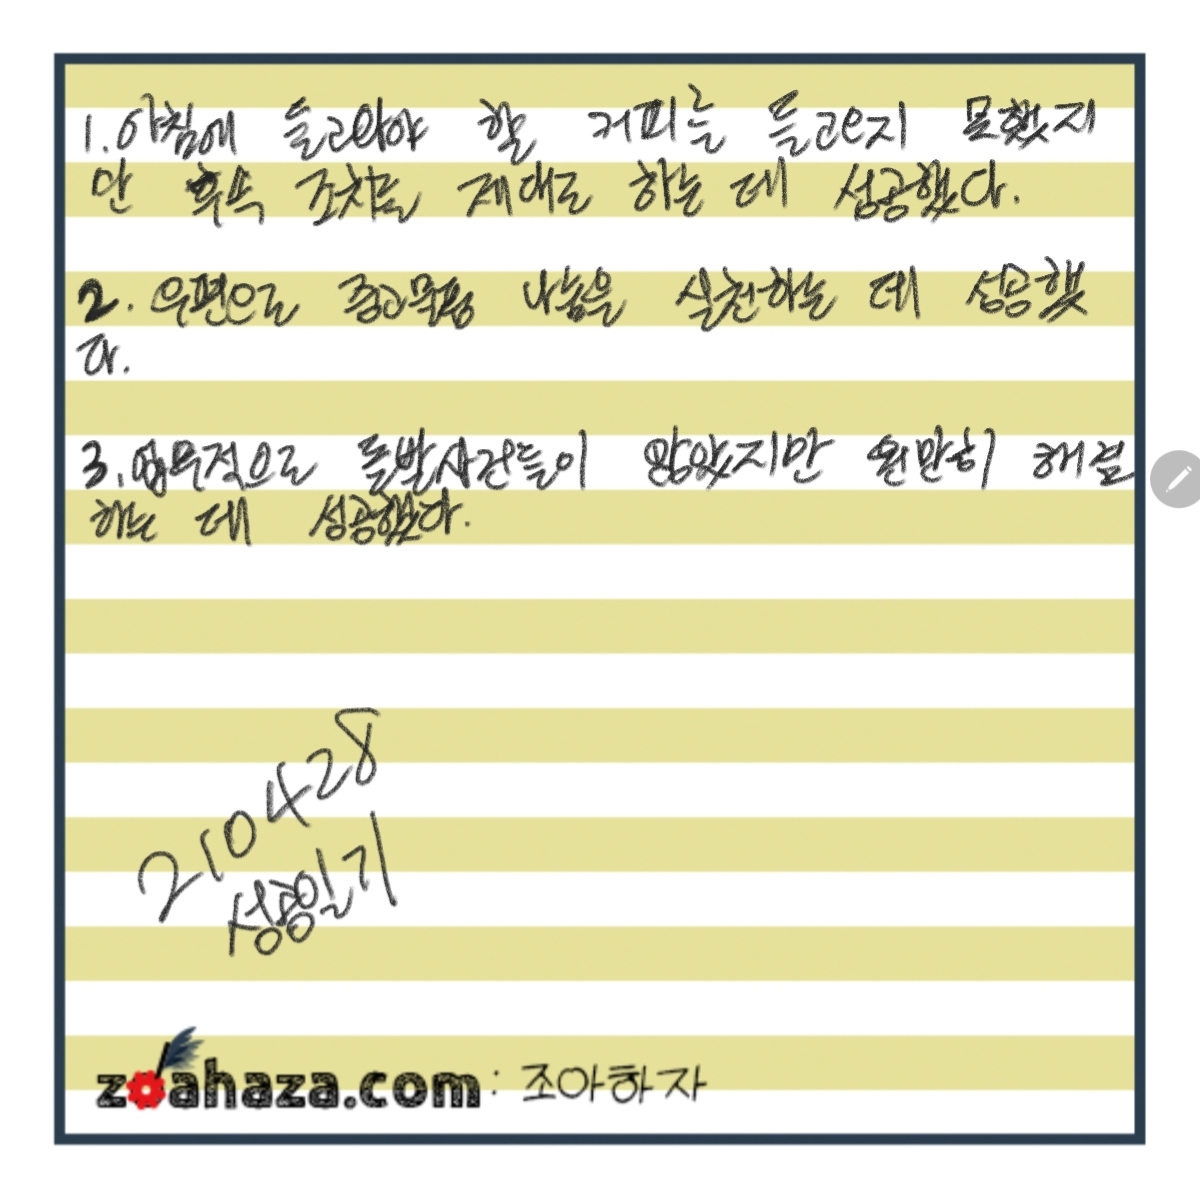 1. 아침에 들고와야 할 커피를 들고오지 못했지
만 후속 조치를 제대로 하는 데 성공했다.
2. 우편으로 중고물품 나눔을 실천하는 데 성공했
다.
3. 업무적으로 돌발사건들이 많았지만 원만히 해결
하는 데 성공했다.
210428
성공일기
zoahaza.com : 조아하자